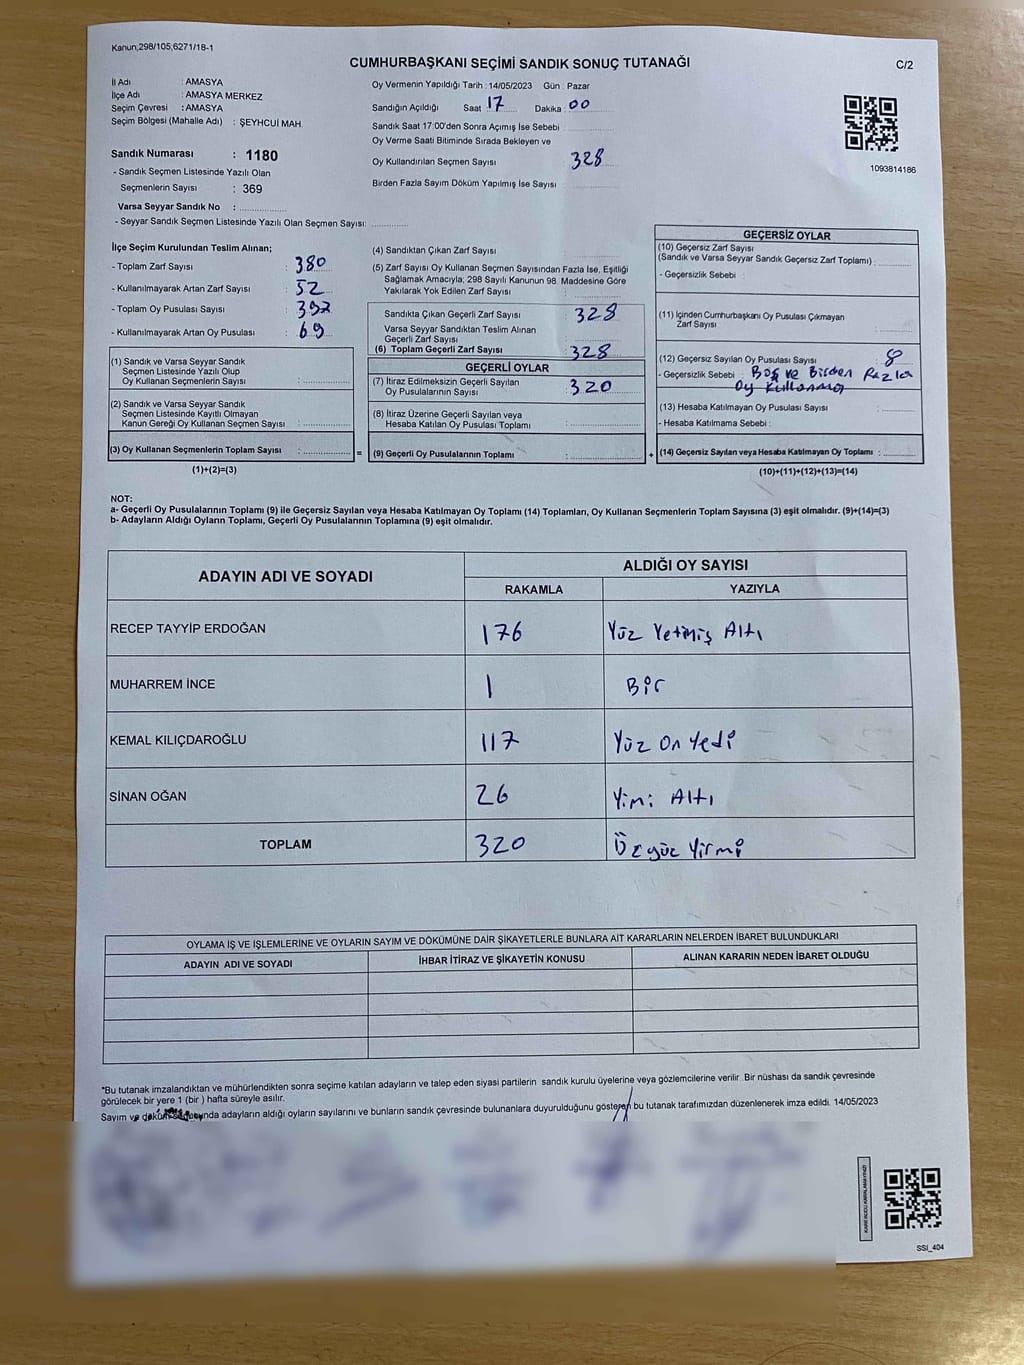 Kanun;298/105,6271/18-1
CUMHURBAŞKANI SEÇİMİ SANDIK SONUÇ TUTANAĞI
C/2
İl Adı : AMASYA
İlçe Adı : AMASYA MERKEZ
Seçim Çevresi : AMASYA
Seçim Bölgesi (Mahalle Adı) : ŞEYHCUİ MAH.
Sandık Numarası : 1180
- Sandık Seçmen Listesinde Yazılı Olan
Seçmenlerin Sayısı : 369
Varsa Seyyar Sandık No :
- Seyyar Sandık Seçmen Listesinde Yazılı Olan Seçmen Sayısı:
Oy Vermenin Yapıldığı Tarih : 14/05/2023 Gün : Pazar
Sandığın Açıldığı Saat : 17 Dakika : 00
Sandık Saat 17:00'den Sonra Açımış İse Sebebi
Oy Verme Saati Bitiminde Sırada Bekleyen ve
Oy Kullandırılan Seçmen Sayısı 328
Birden Fazla Sayım Döküm Yapılmış İse Sayısı
1093814186
İlçe Seçim Kurulundan Teslim Alınan;
- Toplam Zarf Sayısı : 380
- Kullanılmayarak Artan Zarf Sayısı : 52
- Toplam Oy Pusulası Sayısı : 397
- Kullanılmayarak Artan Oy Pusulası : 69
(1) Sandık ve Varsa Seyyar Sandık
Seçmen Listesinde Yazılı Olup
Oy Kullanan Seçmenlerin Sayısı :
(2) Sandık ve Varsa Seyyar Sandık
Seçmen Listesinde Kayıtlı Olmayan
Kanun Gereği Oy Kullanan Seçmen Sayısı :
(3) Oy Kullanan Seçmenlerin Toplam Sayısı :
(1)+(2)=(3)
(4) Sandıktan Çıkan Zarf Sayısı
(5) Zarf Sayısı Oy Kullanan Seçmen Sayısından Fazla İse, Eşitliği
Sağlamak Amacıyla, 298 Sayılı Kanunun 98. Maddesine Göre
Yakılarak Yok Edilen Zarf Sayısı
Sandıkta Çıkan Geçerli Zarf Sayısı : 328
Varsa Seyyar Sandıktan Teslim Alınan
Geçerli Zarf Sayısı
(6) Toplam Geçerli Zarf Sayısı : 328
GEÇERLİ OYLAR
(7) İtiraz Edilmeksizin Geçerli Sayılan
Oy Pusulalarının Sayısı : 320
(8) İtiraz Üzerine Geçerli Sayılan veya
Hesaba Katılan Oy Pusulası Toplamı
= (9) Geçerli Oy Pusulalarının Toplamı :
GEÇERSİZ OYLAR
(10) Geçersiz Zarf Sayısı
(Sandık ve Varsa Seyyar Sandık Geçersiz Zarf Toplamı) :
- Geçersizlik Sebebi :
(11) İçinden Cumhurbaşkanı Oy Pusulası Çıkmayan
Zarf Sayısı
(12) Geçersiz Sayılan Oy Pusulası Sayısı : 8
- Geçersizlik Sebebi : Boş ve Birden Fazla
Oy Kullanma
(13) Hesaba Katılmayan Oy Pusulası Sayısı :
- Hesaba Katılmama Sebebi :
+ (14) Geçersiz Sayılan veya Hesaba Katılmayan Oy Toplamı :
(10)+(11)+(12)+(13)=(14)
NOT:
a- Geçerli Oy Pusulalarının Toplamı (9) ile Geçersiz Sayılan veya Hesaba Katılmayan Oy Toplamı (14) Toplamları, Oy Kullanan Seçmenlerin Toplam Sayısına (3) eşit olmalıdır. (9)+(14)=(3)
b- Adayların Aldığı Oyların Toplamı, Geçerli Oy Pusulalarının Toplamına (9) eşit olmalıdır.
ADAYIN ADI VE SOYADI
ALDIĞI OY SAYISI
RAKAMLA YAZIYLA
RECEP TAYYİP ERDOĞAN 176 Yüz Yetmiş Altı
MUHARREM İNCE 1 Bir
KEMAL KILIÇDAROĞLU 117 Yüz On Yedi
SİNAN OĞAN 26 Yimi Altı
TOPLAM 320 Üçyüz Yirmi
OYLAMA İŞ VE İŞLEMLERİNE VE OYLARIN SAYIM VE DÖKÜMÜNE DAİR ŞİKAYETLERLE BUNLARA AİT KARARLARIN NELERDEN İBARET BULUNDUKLARI
ADAYIN ADI VE SOYADI İHBAR İTİRAZ VE ŞİKAYETİN KONUSU ALINAN KARARIN NEDEN İBARET OLDUĞU
*Bu tutanak imzalandıktan ve mühürlendikten sonra seçime katılan adayların ve talep eden siyasi partilerin sandık kurulu üyelerine veya gözlemcilerine verilir. Bir nüshası da sandık çevresinde
görülecek bir yere 1 (bir ) hafta süreyle asılır.
Sayım ve döküm sonucunda adayların aldığı oyların sayılarını ve bunların sandık çevresinde bulunanlara duyurulduğunu gösteren bu tutanak tarafımızdan düzenlenerek imza edildi. 14/05/2023
SSI_404